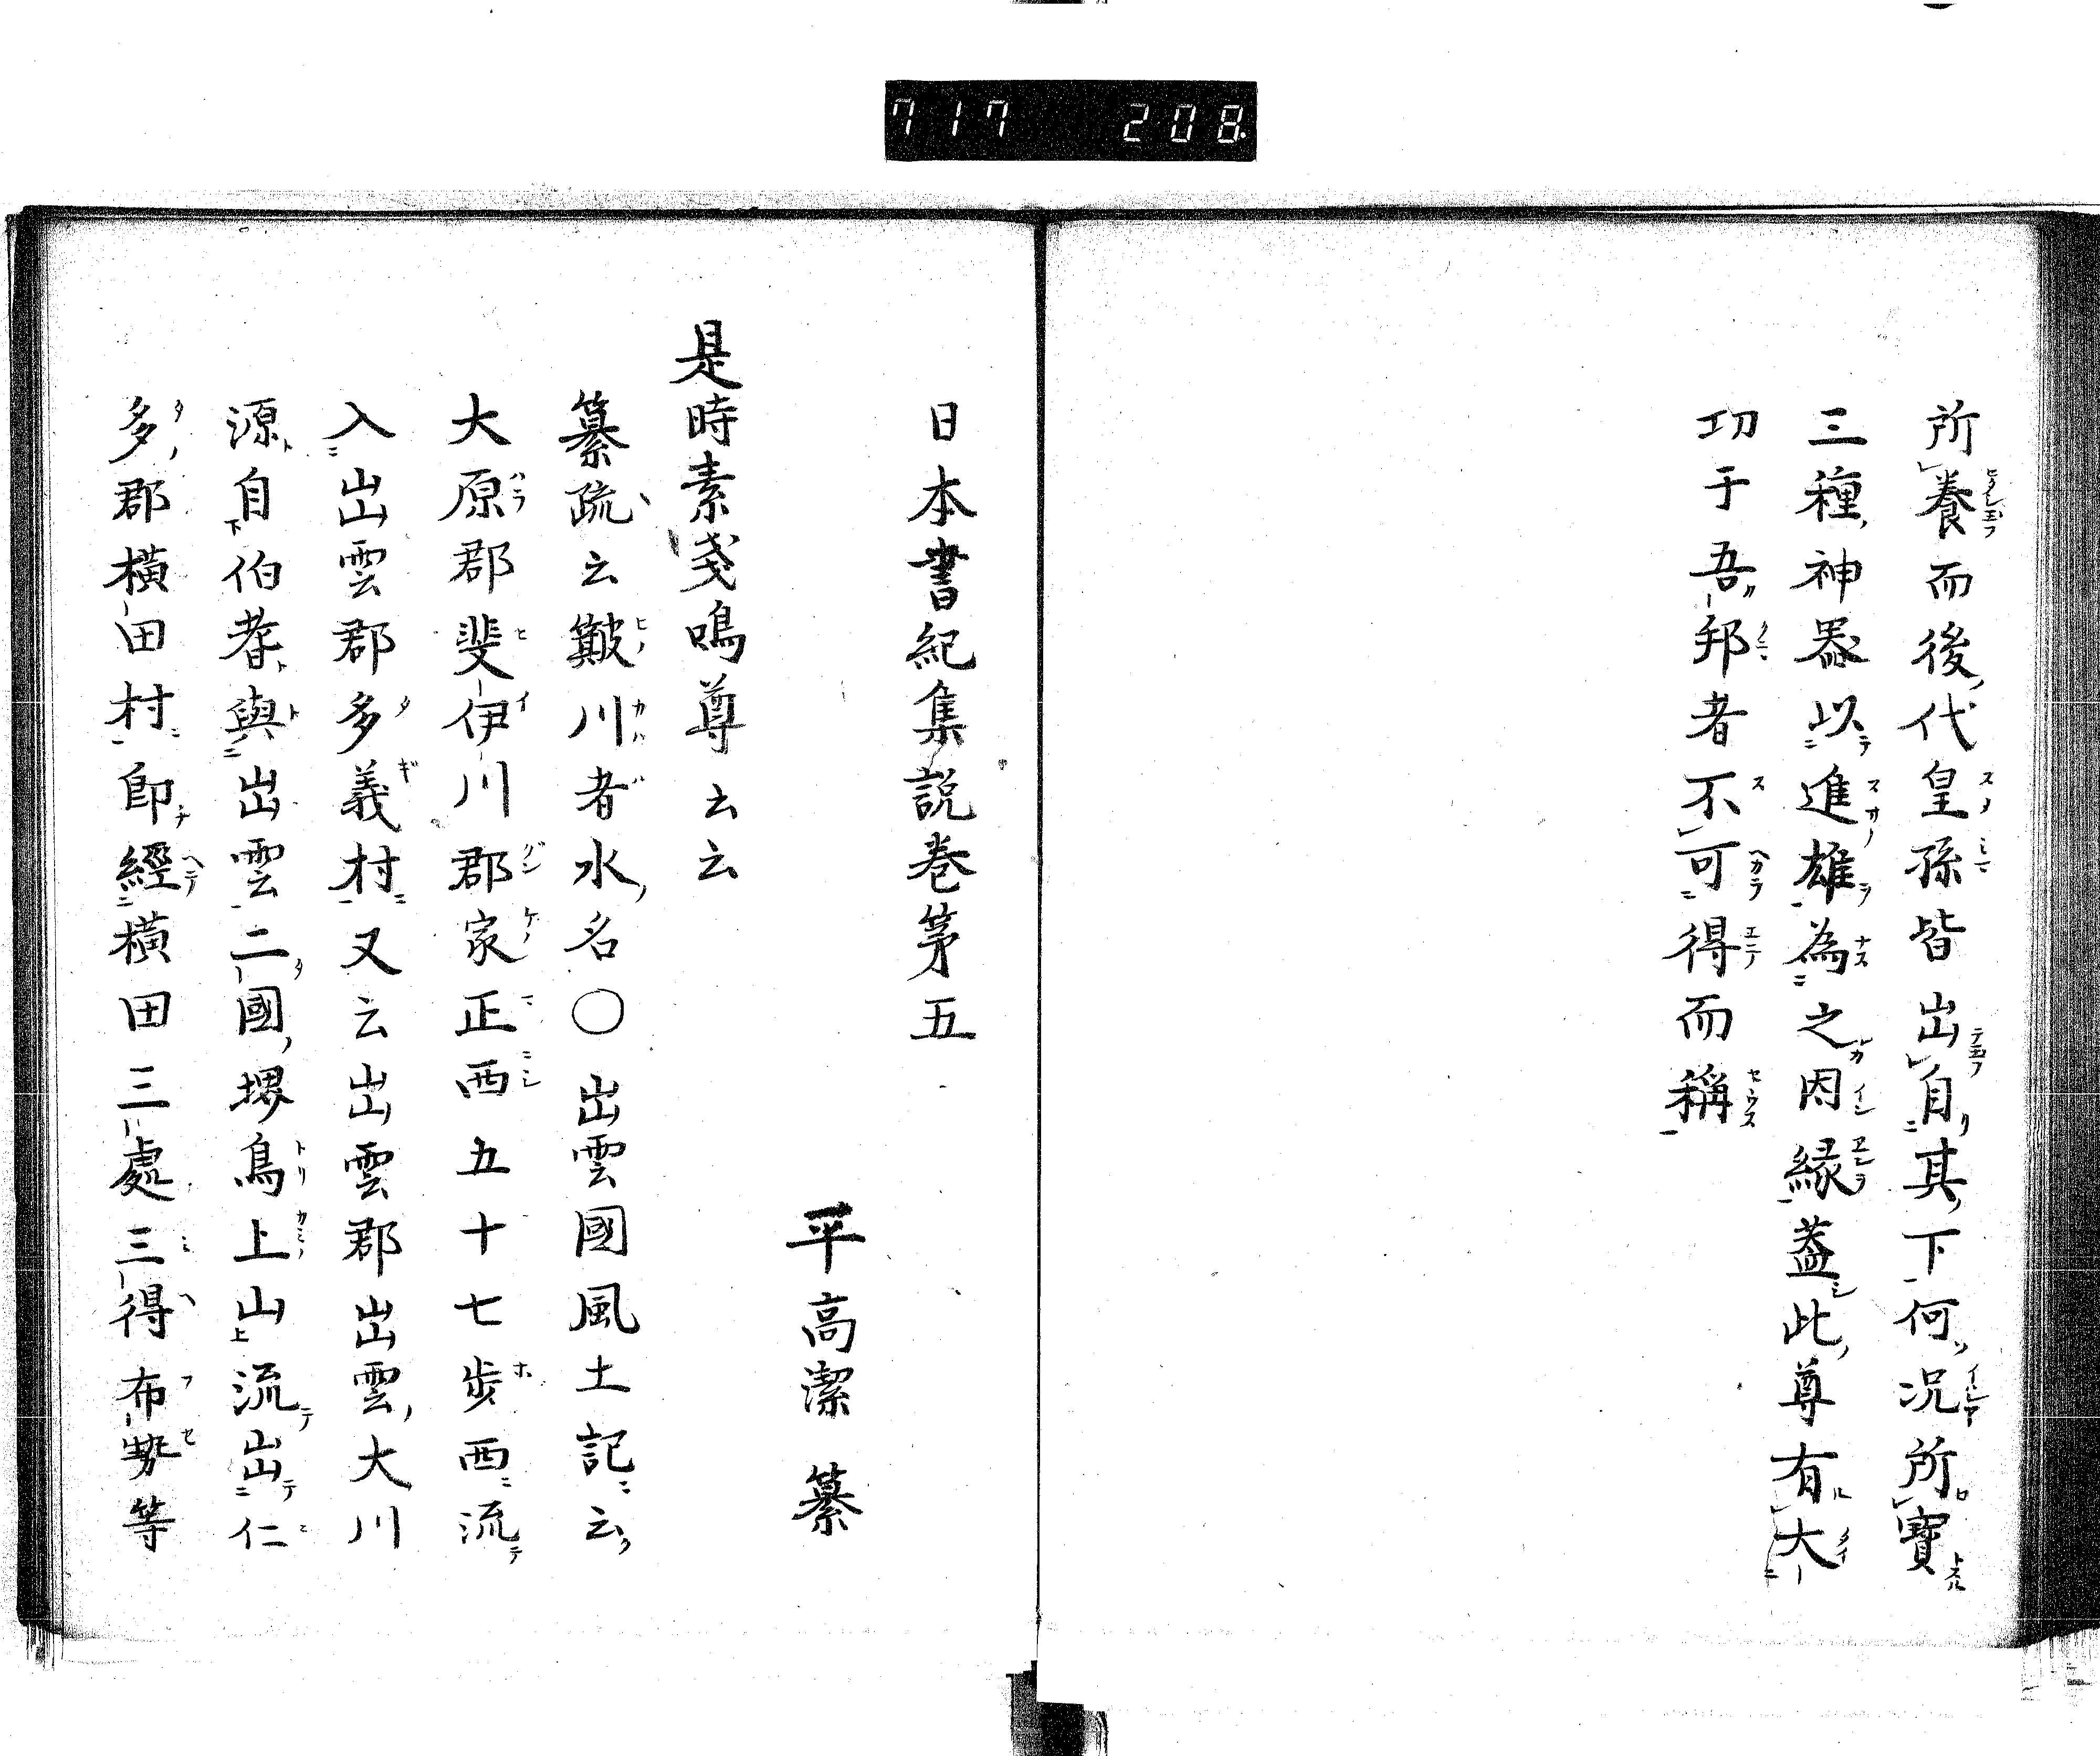 717 208
所養而後代皇孫皆出自其下何況所寶
三種神器以進雄為之因縁蓋此尊有大
功于吾邦者不可得而稱
日本書紀集説巻第五
平高潔 纂
是時素戔嗚尊云云
纂疏云簸川者水名〇出雲國風土記云
大原郡斐伊川郡家正西五十七歩西流
入出雲郡多義村又云出雲郡出雲大川
源自伯耆與出雲二國堺鳥上山流出仁
多郡横田村即經横田三處三得布勢等